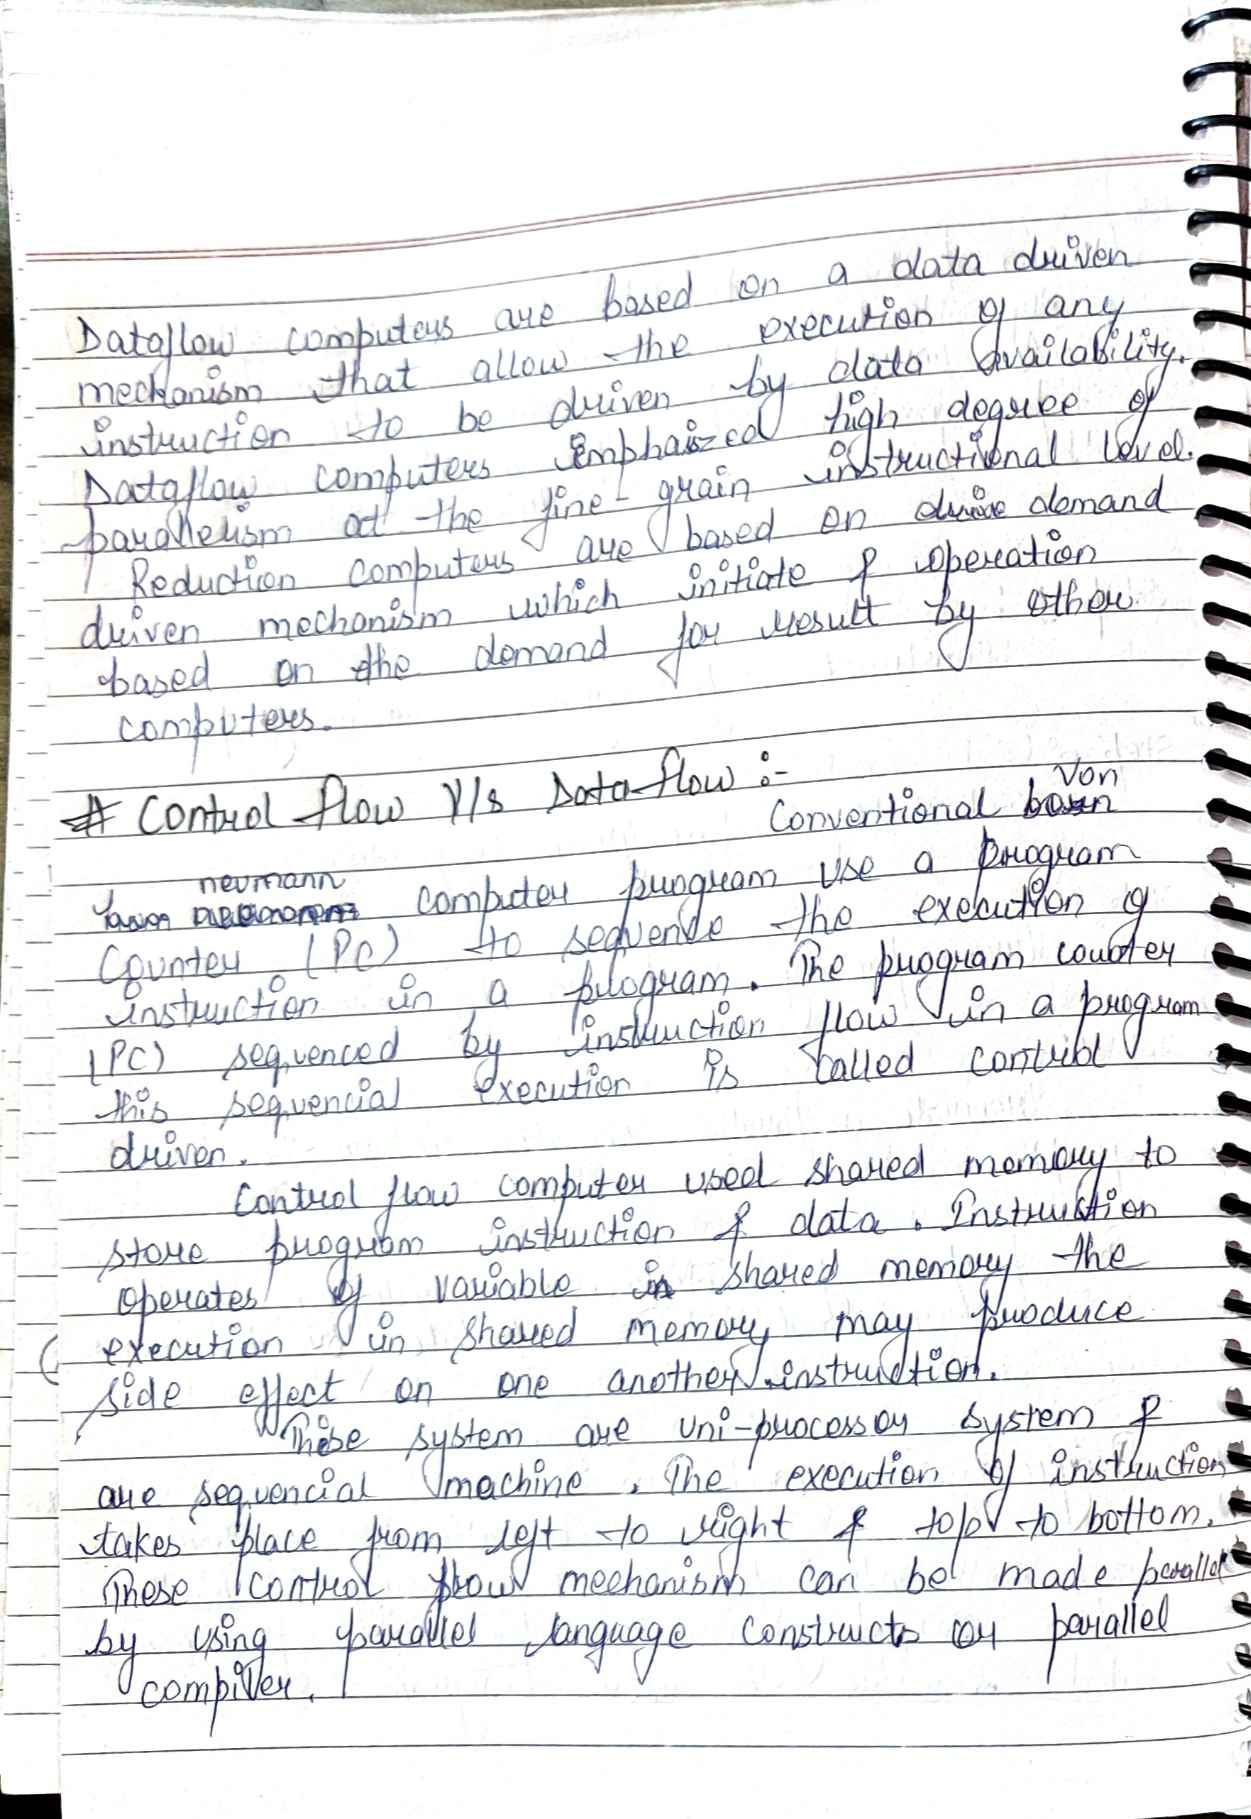 Dataflow computers are based on a data driven
mechanism that allow the execution of any
instruction to be driven by data availability.
Dataflow computers emphasized high degree of
parallelism at the fine-grain instructional level.
Reduction computers are based on demand
driven mechanism which initiate & operation
based on the demand for result by other
computers.
# Control flow V/s Dataflow :-
Conventional Von
neumann computer program use a program
Counter (PC) to sequence the execution of
instruction in a program. The program counter
(PC) sequenced by instruction flow in a program
this sequencial execution is called control
driven.
Control flow computer used shared memory to
store program instruction & data. Instruction
operates of variable in shared memory the
execution in shared memory may produce
side effect on one another instruction.
These system are uni-processor system &
are sequencial machine. The execution of instruction
takes place from left to right & top to bottom.
These control flow mechanism can be made parallel
by using parallel language constructs or parallel
compiler.